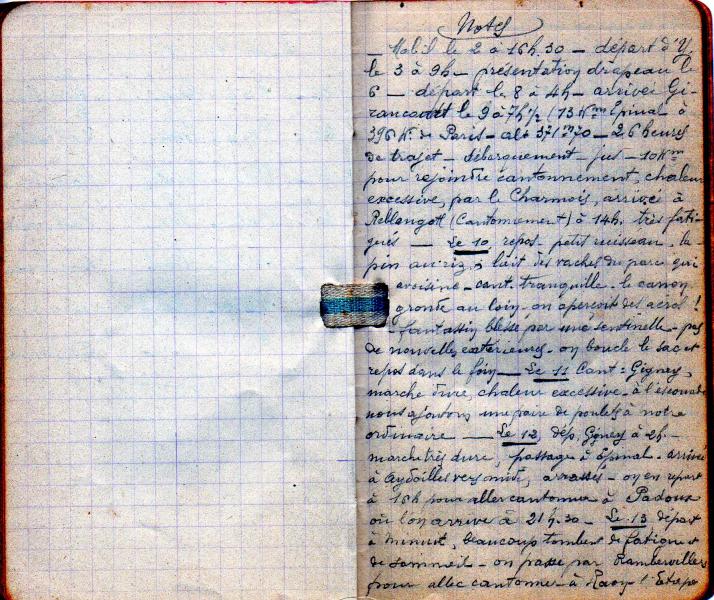 Notes
— Mobil le 2 à 16h.30 — départ d'Y.
le 3 à 9h — présentation drapeau le
6 — départ le 8 à 4h — arrivée Gi-
rancourt le 9 à 7h ½ (13 Km Epinal à
396 K. de Paris — alt 371m70 — 26 heures
de trajet — débarquement — jus — 10 Km
pour rejoindre cantonnement, chaleur
excessive, par le Charmois, arrivée à
(Cantonnement) à 14h. très fati-
gués — Le 10 repos petit ruisseau, la-
pin au riz, lait des vaches du parc qui
avoisine — cant. tranquille — le canon
gronde au loin — on aperçoit des aéros !
— fantassin blessé par une sentinelle — pas
de nouvelles extérieures — on boucle le sac et
repos dans le foin — Le 11 Cant : Gigney,
marche dure, chaleur excessive — à l'escouade
nous ajoutons une paire de poulets à notre
ordinaire — Le 12, dép. Gigney à 2h —
marche très dure, passage à Epinal — arrivée
à Aydoilles vers midi, — on en repart
à 16h pour aller cantonner à Padoux
où l'on arrive à 21h.30 — Le 13 départ
à minuit, beaucoup tombent de fatigue et
de sommeil — on passe par Rambervillers
pour aller cantonner à Raon l'Etape